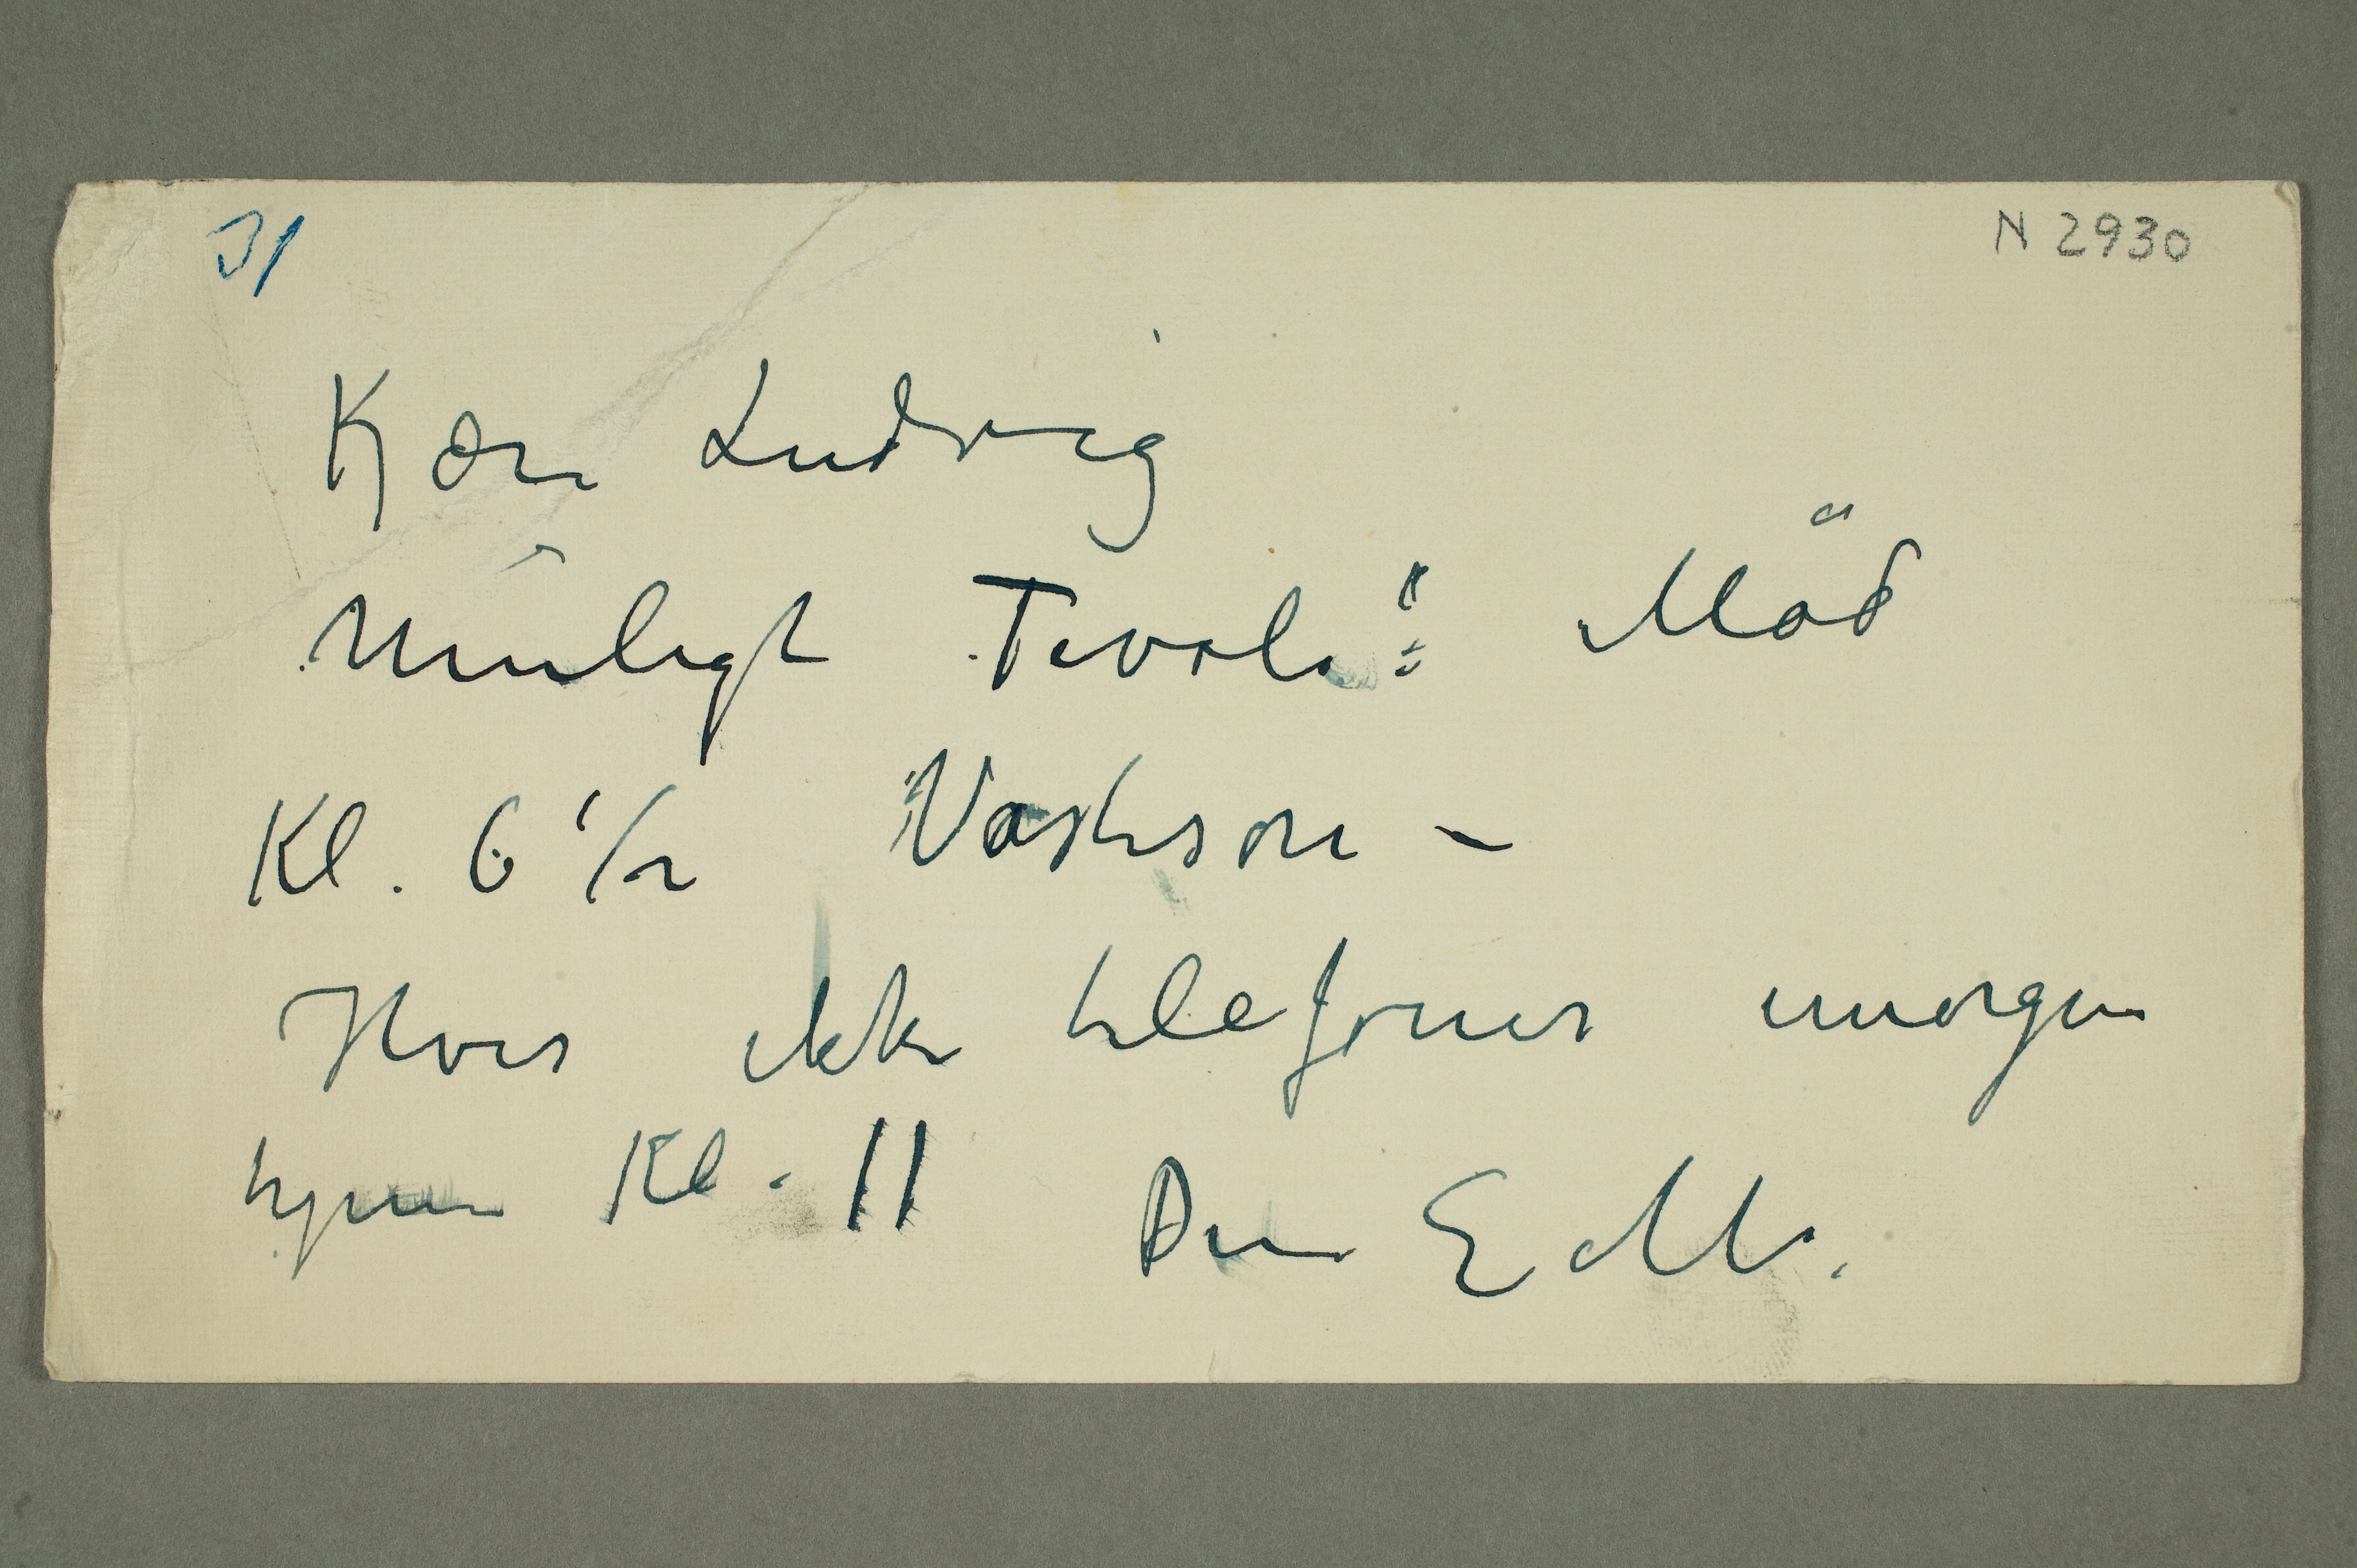 31
N 2930
Kjære Ludvig
Muligt Tivoli! Mød
Kl. 6 1/2
Hvis ikke telefoner imorgen
hjem Kl. 11 Din E M.